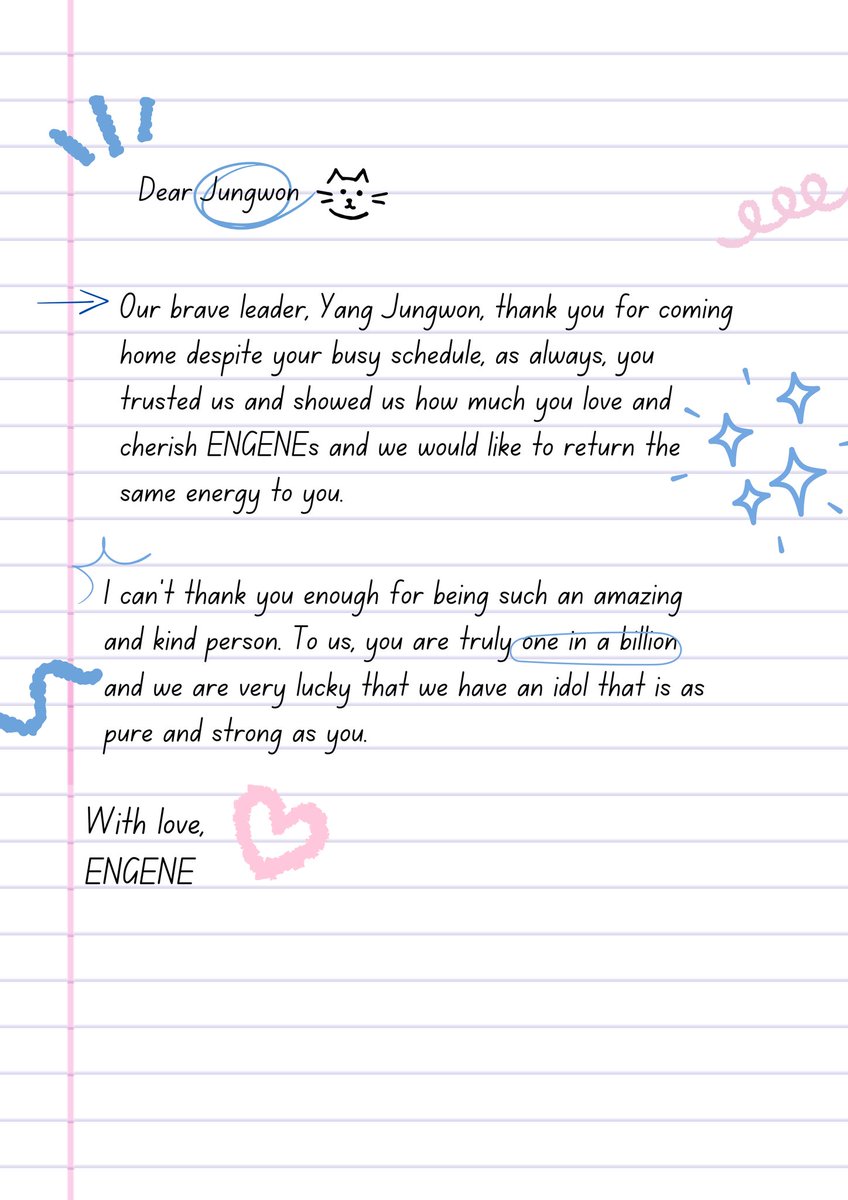 Dear Jungwon
Our brave leader, Yang Jungwon, thank you for coming
home despite your busy schedule, as always, you
trusted us and showed us how much you love and
cherish ENGENEs and we would like to return the
same energy to you.
I can't thank you enough for being such an amazing
and kind person. To us, you are truly one in a billion
and we are very lucky that we have an idol that is as
pure and strong as you.
With love,
ENGENE